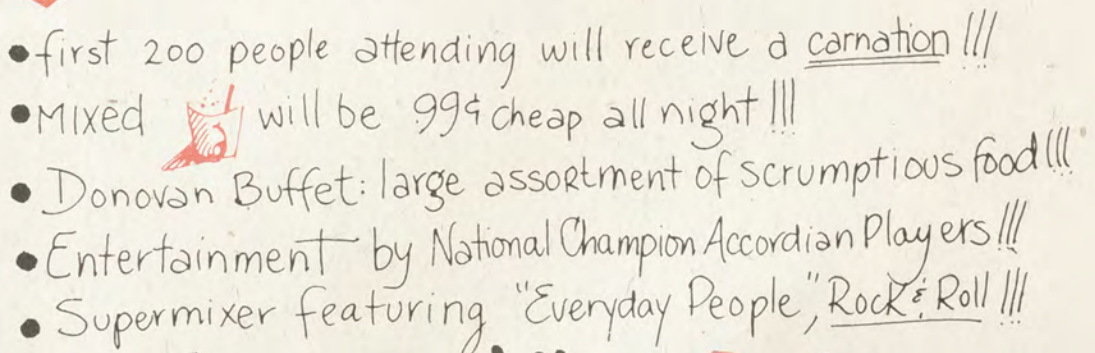 • first 200 people attending will receive a carnation!!!
• Mixed will be 99¢ cheap all night!!!
• Donovan Buffet: large assortment of scrumptious food!!!
• Entertainment by National Champion Accordian Players!!!
• Supermixer featuring "Everyday People", Rock & Roll!!!